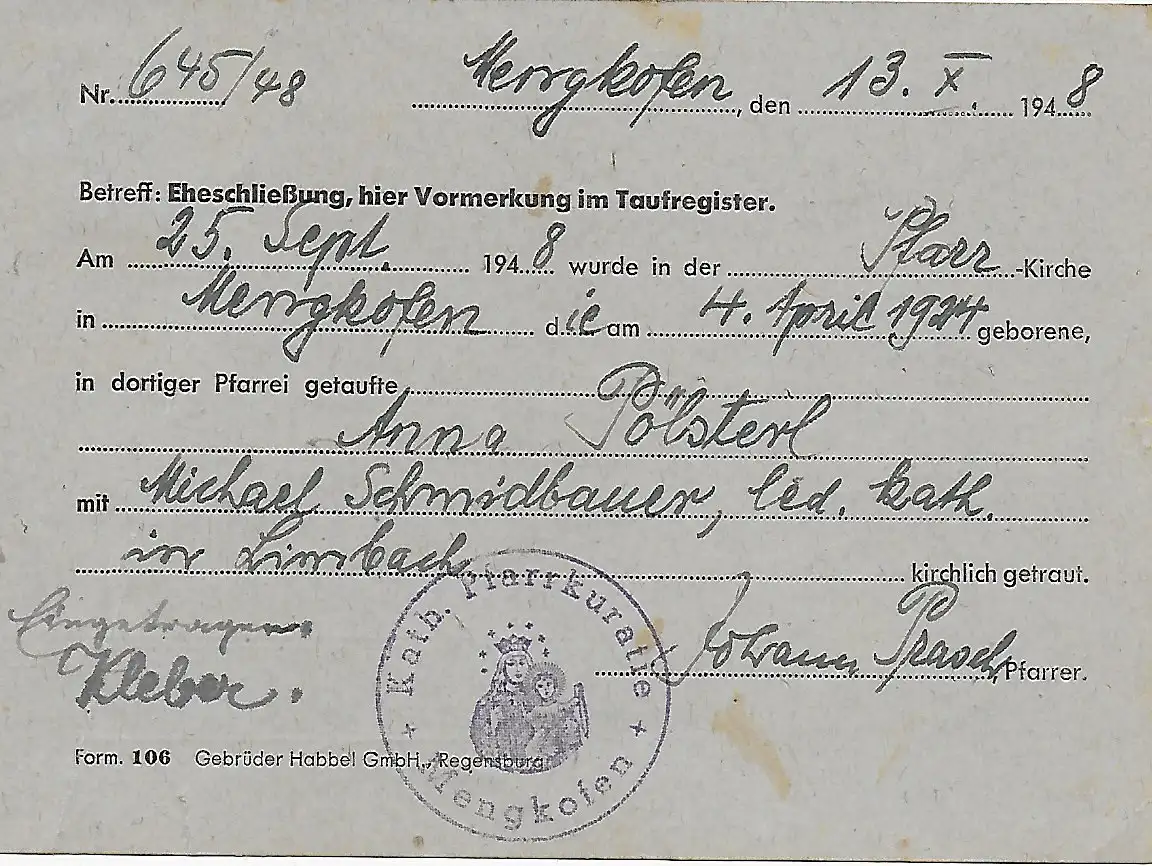 Nr. 645/48 Mengkofen, den 13. X. 1948
Betreff: Eheschließung, hier Vormerkung im Taufregister.
Am 25. Sept. 1948 wurde in der Pfarr-Kirche
in Mengkofen die am 4. April 1924 geborene,
in dortiger Pfarrei getaufte
Anna Pölsterl
mit Michael Schmidbauer, led. kath.
in Limbach kirchlich getraut.
Eingetragen:
Kleber.
Johann Prasch, Pfarrer.
Kath. Pfarrkuratie
Mengkofen
Form. 106 Gebrüder Habbel GmbH., Regensburg